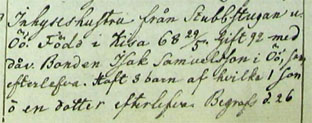 Inhyseshustru från Stubbstugan u.
Öö. Född i Kisa 68 29/5. Gift 92 med
dåv. Bonden Isak Samuelsson i Öö, som
efterlefva. Haft 3 barn af hvilke 1 son
o en dotter efterlefva. Begrafs d. 26